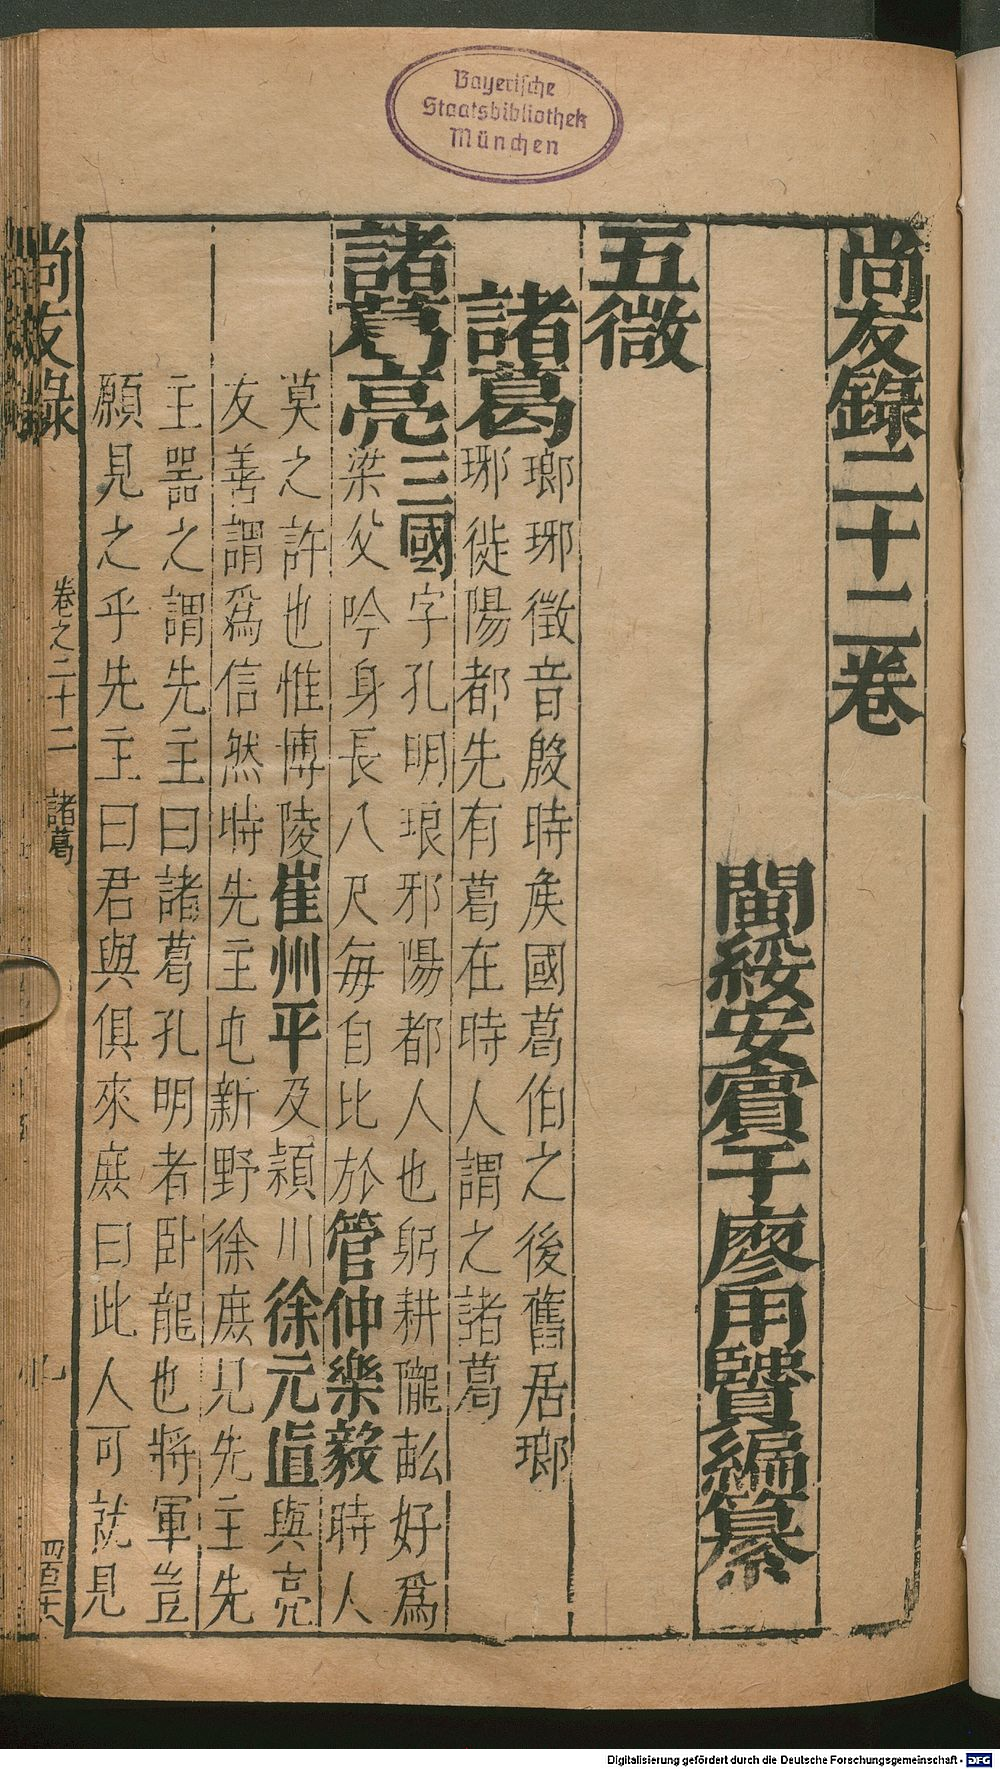 Bayerische
Staatsbibliothek
München
尚友錄二十二卷
閩綏安賓于廖用賢編纂
五微
諸葛
瑯琊徵音殷時侯國葛伯之後舊居瑯
琊徙陽都先有葛在時人謂之諸葛
諸葛亮
三國字孔明琅邪陽都人也躬耕隴畝好爲
梁父吟身長八尺每自比於管仲樂毅時人
莫之許也惟博陵崔州平及潁川徐元直與亮
友善謂爲信然時先主屯新野徐庶見先主先
主器之謂先主曰諸葛孔明者卧龍也將軍豈
願見之乎先主曰君與俱來庶曰此人可就見
尚友錄
卷之二十二
諸葛
四百三十八
Digitalisierung gefördert durch die Deutsche Forschungsgemeinschaft - DFG